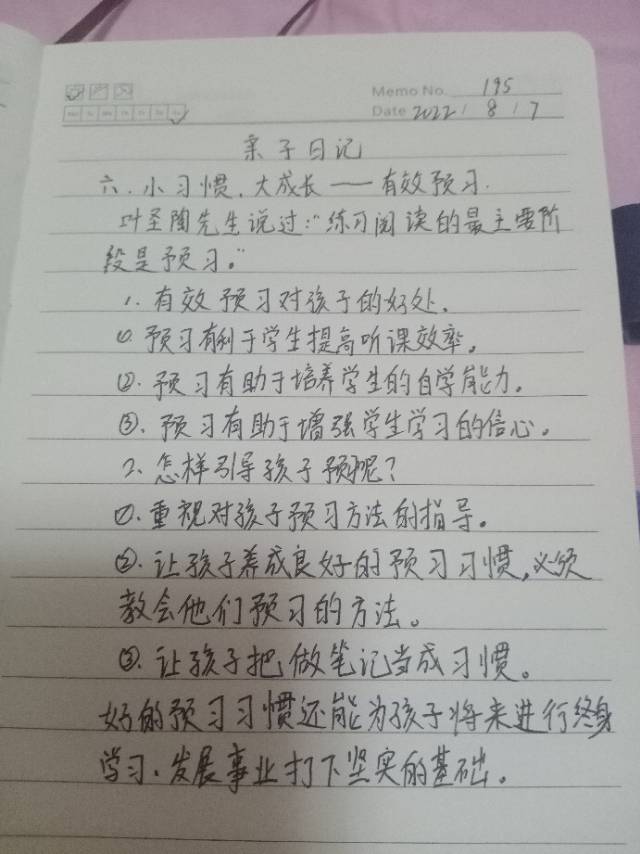 Memo No. 195
Date 2022 / 8 / 7
亲子日记
六、小习惯,大成长——有效预习.
叶圣陶先生说过:“练习阅读的最主要阶
段是预习。”
1. 有效预习对孩子的好处.
①.预习有利于学生提高听课效率。
②.预习有助于培养学生的自学能力.
③.预习有助于增强学生学习的信心。
2、怎样引导孩子预习呢?
①.重视对孩子预习方法的指导。
②.让孩子养成良好的预习习惯,必须
教会他们预习的方法。
③.让孩子把做笔记当成习惯。
好的预习习惯还能为孩子将来进行终身
学习、发展事业打下坚实的基础。